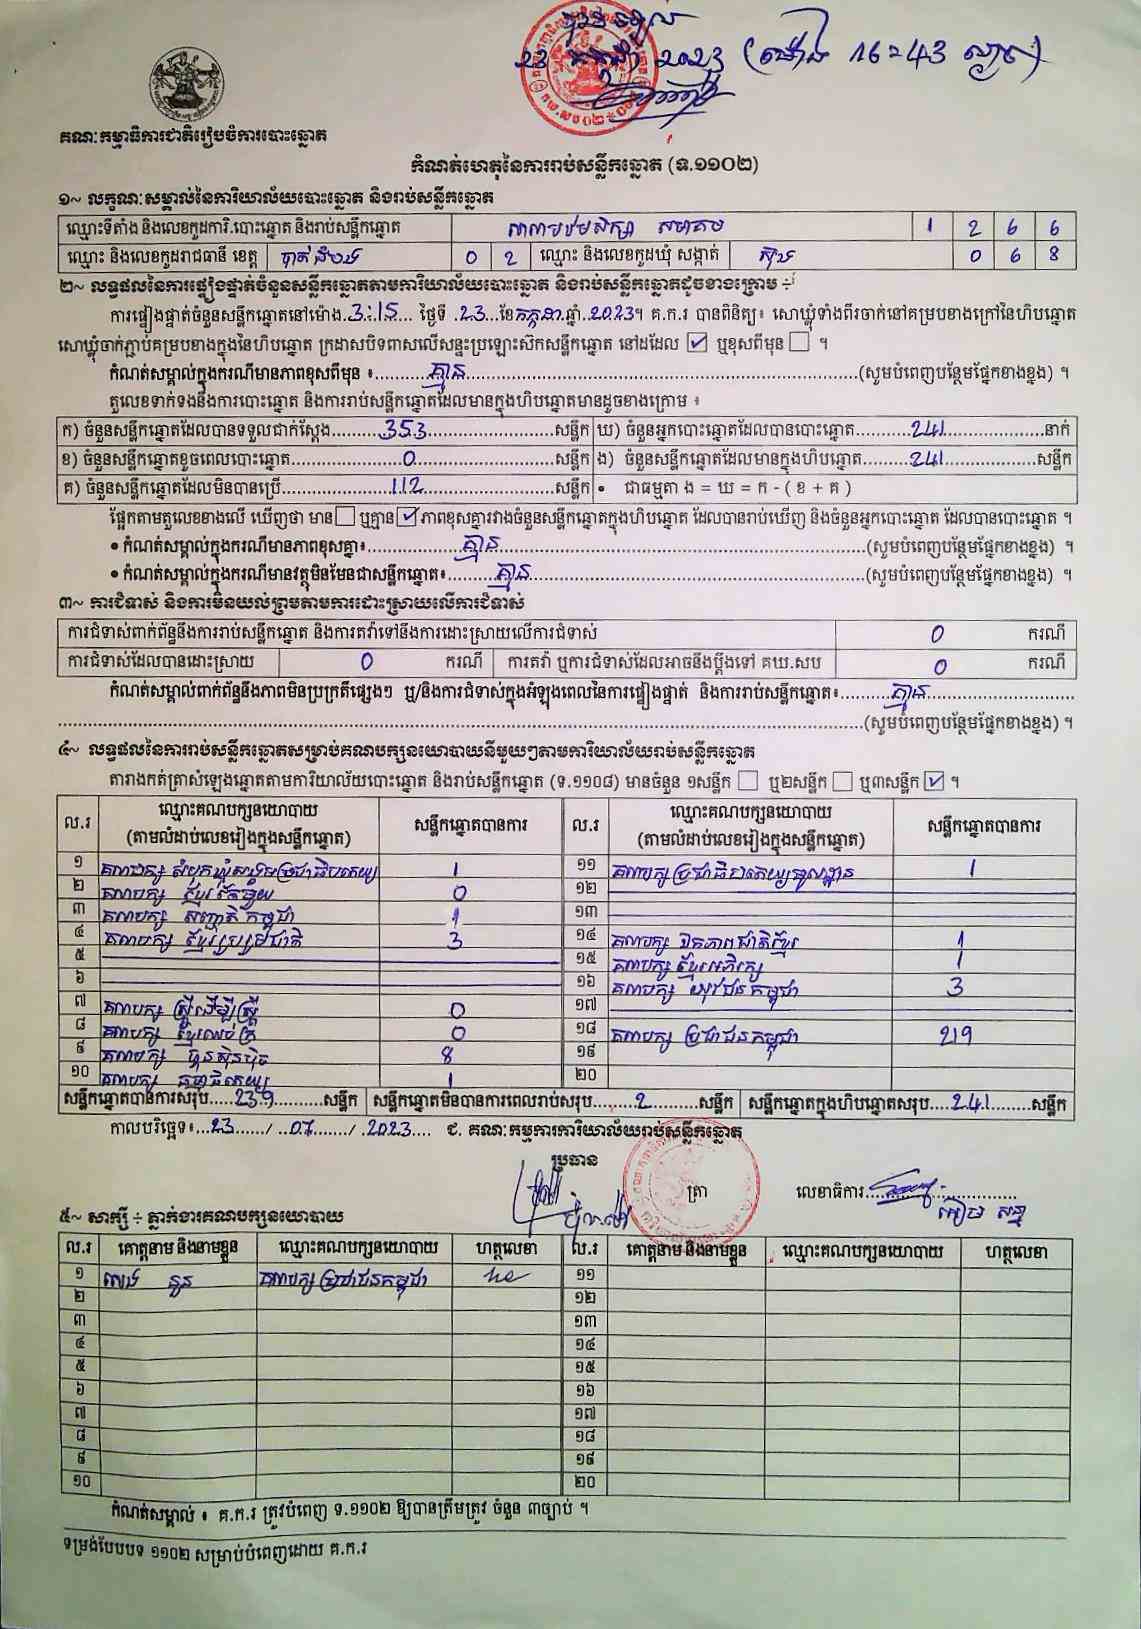 23 កក្កដា 2023 (ម៉ោង 16:43 ល្ងាច)
គណៈកម្មាធិការជាតិរៀបចំការបោះឆ្នោត
កំណត់ហេតុនៃការរាប់សន្លឹកឆ្នោត (ទ.១១០២)
១~ លក្ខណៈសម្គាល់នៃការិយាល័យបោះឆ្នោត និងរាប់សន្លឹកឆ្នោត
ឈ្មោះទីតាំង និងលេខកូដការិ.បោះឆ្នោត និងរាប់សន្លឹកឆ្នោត 1 2 6 6
ឈ្មោះ និងលេខកូដរាជធានី ខេត្ត បាត់ដំបង 0 2 ឈ្មោះ និងលេខកូដឃុំ សង្កាត់ 0 6 8
២~ លទ្ធផលនៃការផ្ទៀងផ្ទាត់ចំនួនសន្លឹកឆ្នោតតាមការិយាល័យបោះឆ្នោត និងរាប់សន្លឹកឆ្នោតដូចខាងក្រោម ÷
ការផ្ទៀងផ្ទាត់ចំនួនសន្លឹកឆ្នោតនៅម៉ោង 3:15 ថ្ងៃទី 23 ខែ កក្កដា ឆ្នាំ 2023។ គ.ក.រ បានពិនិត្យ៖ សោឃ្លុំទាំងពីរចាក់នៅគម្របខាងក្រៅនៃហិបឆ្នោត
សោឃ្លុំចាក់ភ្ជាប់គម្របខាងក្នុងនៃហិបឆ្នោត ក្រដាសបិទពាសលើសន្ទះប្រឡោះស៊កសន្លឹកឆ្នោត នៅដដែល ☑ ឬខុសពីមុន ☐ ។
កំណត់សម្គាល់ក្នុងករណីមានភាពខុសពីមុន ៖ គ្មាន (សូមបំពេញបន្ថែមផ្នែកខាងខ្នង) ។
តួលេខទាក់ទងនឹងការបោះឆ្នោត និងការរាប់សន្លឹកឆ្នោតដែលមានក្នុងហិបឆ្នោតមានដូចខាងក្រោម ៖
ក) ចំនួនសន្លឹកឆ្នោតដែលបានទទួលជាក់ស្តែង 353 សន្លឹក ឃ) ចំនួនអ្នកបោះឆ្នោតដែលបានបោះឆ្នោត 241 នាក់
ខ) ចំនួនសន្លឹកឆ្នោតខូចពេលបោះឆ្នោត 0 សន្លឹក ង) ចំនួនសន្លឹកឆ្នោតដែលមានក្នុងហិបឆ្នោត 241 សន្លឹក
គ) ចំនួនសន្លឹកឆ្នោតដែលមិនបានប្រើ 112 សន្លឹក • ជាធម្មតា ង = ឃ = ក - ( ខ + គ )
ផ្អែកតាមតួលេខខាងលើ ឃើញថា មាន ☐ ឬគ្មាន ☑ ភាពខុសគ្នារវាងចំនួនសន្លឹកឆ្នោតក្នុងហិបឆ្នោត ដែលបានរាប់ឃើញ និងចំនួនអ្នកបោះឆ្នោត ដែលបានបោះឆ្នោត ។
• កំណត់សម្គាល់ក្នុងករណីមានភាពខុសគ្នា៖ គ្មាន (សូមបំពេញបន្ថែមផ្នែកខាងខ្នង) ។
• កំណត់សម្គាល់ក្នុងករណីមានវត្ថុមិនមែនជាសន្លឹកឆ្នោត៖ គ្មាន (សូមបំពេញបន្ថែមផ្នែកខាងខ្នង) ។
៣~ ការជំទាស់ និងការមិនយល់ព្រមតាមការដោះស្រាយលើការជំទាស់
ការជំទាស់ពាក់ព័ន្ធនឹងការរាប់សន្លឹកឆ្នោត និងការតវ៉ាទៅនឹងការដោះស្រាយលើការជំទាស់ 0 ករណី
ការជំទាស់ដែលបានដោះស្រាយ 0 ករណី ការតវ៉ា ឬការជំទាស់ដែលអាចនឹងប្តឹងទៅ គឃ.សប 0 ករណី
កំណត់សម្គាល់ពាក់ព័ន្ធនឹងភាពមិនប្រក្រតីផ្សេងៗ ឬ/និងការជំទាស់ក្នុងអំឡុងពេលនៃការផ្ទៀងផ្ទាត់ និងការរាប់សន្លឹកឆ្នោត៖ គ្មាន
(សូមបំពេញបន្ថែមផ្នែកខាងខ្នង) ។
៤~ លទ្ធផលនៃការរាប់សន្លឹកឆ្នោតសម្រាប់គណបក្សនយោបាយនីមួយៗតាមការិយាល័យរាប់សន្លឹកឆ្នោត
តារាងកត់ត្រាសំឡេងឆ្នោតតាមការិយាល័យបោះឆ្នោត និងរាប់សន្លឹកឆ្នោត (ទ.១១០៨) មានចំនួន ១សន្លឹក ☐ ឬ២សន្លឹក ☐ ឬ៣សន្លឹក ☑ ។
ល.រ ឈ្មោះគណបក្សនយោបាយ (តាមលំដាប់លេខរៀងក្នុងសន្លឹកឆ្នោត) សន្លឹកឆ្នោតបានការ ល.រ ឈ្មោះគណបក្សនយោបាយ (តាមលំដាប់លេខរៀងក្នុងសន្លឹកឆ្នោត) សន្លឹកឆ្នោតបានការ
១ គណបក្ស សំបុកឃ្មុំសង្គមប្រជាធិបតេយ្យ 1 ១១ គណបក្សប្រជាធិបតេយ្យមូលដ្ឋាន 1
២ គណបក្ស ខ្មែរតែមួយ 0 ១២
៣ គណបក្ស សញ្ជាតិកម្ពុជា 1 ១៣
៤ គណបក្ស ខ្មែររួបរួមជាតិ 3 ១៤ គណបក្ស ឯកភាពជាតិខ្មែរ 1
៥ ១៥ គណបក្ស ខ្មែរអភិរក្ស 1
៦ ១៦ គណបក្ស យុវជនកម្ពុជា 3
៧ គណបក្ស ស្ត្រីដើម្បីស្ត្រី 0 ១៧
៨ គណបក្ស ខ្មែរឈប់ក្រ 0 ១៨ គណបក្ស ប្រជាជនកម្ពុជា 219
៩ គណបក្ស ហ៊្វុនស៊ិនប៉ិច 8 ១៩
១០ គណបក្ស ធម្មាធិបតេយ្យ 1 ២០
សន្លឹកឆ្នោតបានការសរុប 239 សន្លឹក សន្លឹកឆ្នោតមិនបានការពេលរាប់សរុប 2 សន្លឹក សន្លឹកឆ្នោតក្នុងហិបឆ្នោតសរុប 241 សន្លឹក
កាលបរិច្ឆេទ៖ 23 / 07 / 2023 ជ. គណៈកម្មការការិយាល័យរាប់សន្លឹកឆ្នោត
ប្រធាន
ត្រា លេខាធិការ
៥~ សាក្សី ÷ ភ្នាក់ងារគណបក្សនយោបាយ
ល.រ គោត្តនាម និងនាមខ្លួន ឈ្មោះគណបក្សនយោបាយ ហត្ថលេខា ល.រ គោត្តនាម និងនាមខ្លួន ឈ្មោះគណបក្សនយោបាយ ហត្ថលេខា
១ គណបក្សប្រជាជនកម្ពុជា ១១
២ ១២
៣ ១៣
៤ ១៤
៥ ១៥
៦ ១៦
៧ ១៧
៨ ១៨
៩ ១៩
១០ ២០
កំណត់សម្គាល់ ៖ គ.ក.រ ត្រូវបំពេញ ទ.១១០២ ឱ្យបានត្រឹមត្រូវ ចំនួន ៣ច្បាប់ ។
ទម្រង់បែបបទ ១១០២ សម្រាប់បំពេញដោយ គ.ក.រ